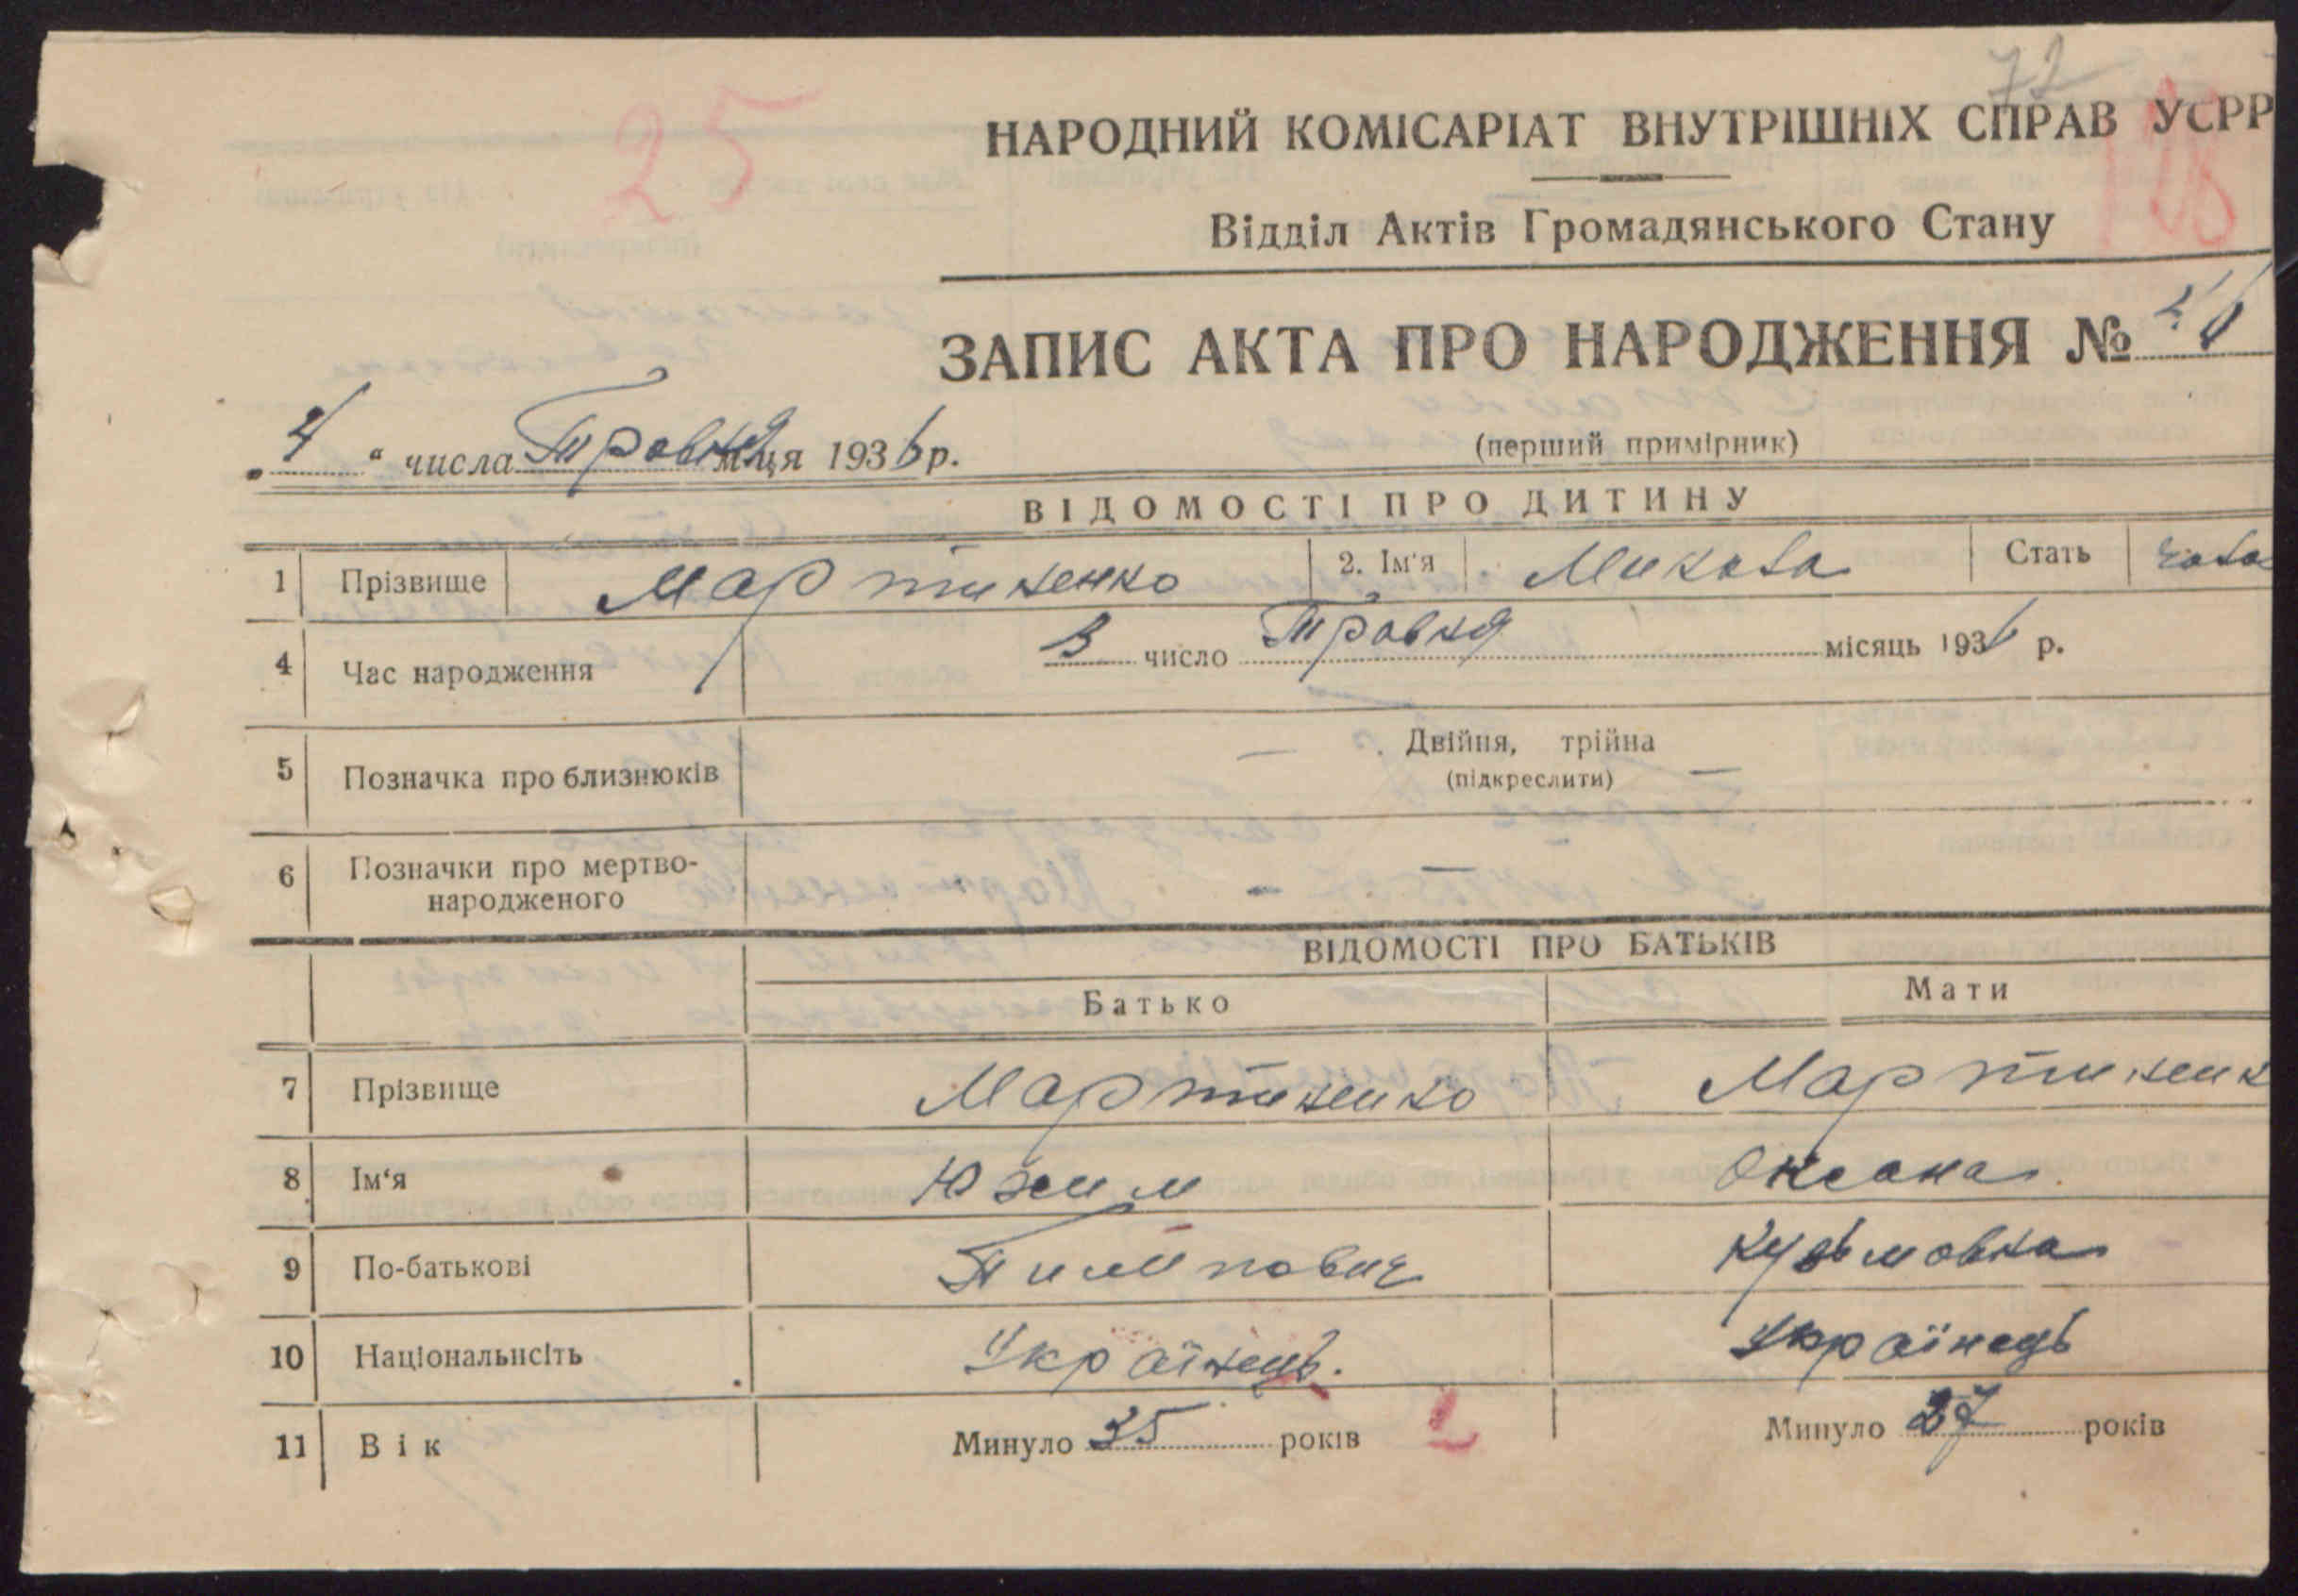 72
25
НАРОДНИЙ КОМІСАРІАТ ВНУТРІШНІХ СПРАВ УСРР
Відділ Актів Громадянського Стану
ЗАПИС АКТА ПРО НАРОДЖЕННЯ №
„4“ числа Травня м-ця 1936 р.
(перший примірник)
ВІДОМОСТІ ПРО ДИТИНУ
1 Прізвище Мартиненко 2. Ім'я Микола Стать
4 Час народження 3 число Травня місяць 1936 р.
5 Позначка про близнюків — Двійня, трійна —
(підкреслити)
6 Позначки про мертво-
народженого -
ВІДОМОСТІ ПРО БАТЬКІВ
Батько Мати
7 Прізвище Мартиненко Мартиненк
8 Ім‘я Юхим Оксана
9 По-батькові Кузьмовна
10 Національнсіть Українець. Українець
11 Вік Минуло 35 років Минуло 27 років